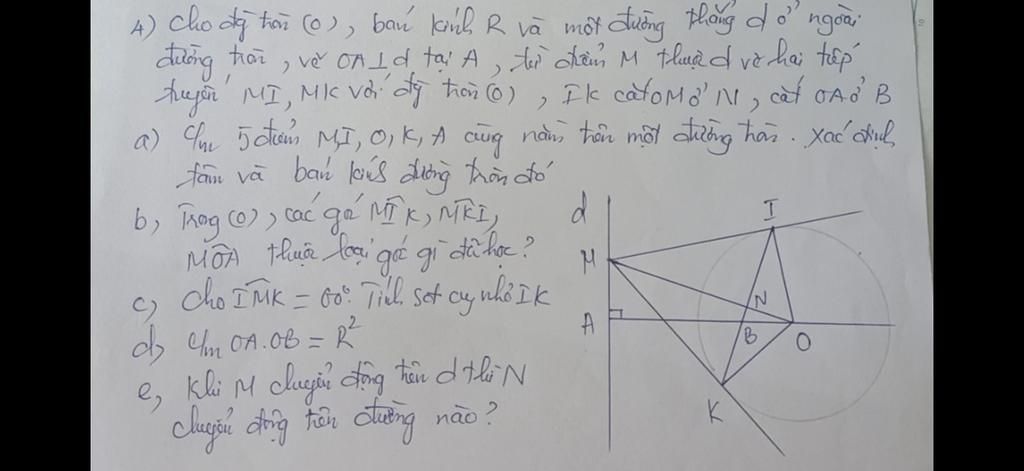 4) Cho đg tròn (O), bán kính R và một đường thẳng d ở ngoài
đường tròn, vẽ OA⊥d tại A, từ điểm M thuộc d vẽ hai tiếp
tuyến MI, MK với đg tròn (O), IK cắt OM ở N, cắt OA ở B
a) C/m 5 điểm M, I, O, K, A cùng nằm trên một đường tròn. Xác định
tâm và bán kính đường tròn đó
b, Trong (O), các góc MIK, MKI,
MOA thuộc loại góc gì đã học?
c, Cho IMK = 60° Tính sđt cung nhỏ IK
d, C/m OA.OB = R²
e, Khi M chuyển động trên d thì N
chuyển động trên đường nào?
d
I
M
N
A
B
O
K